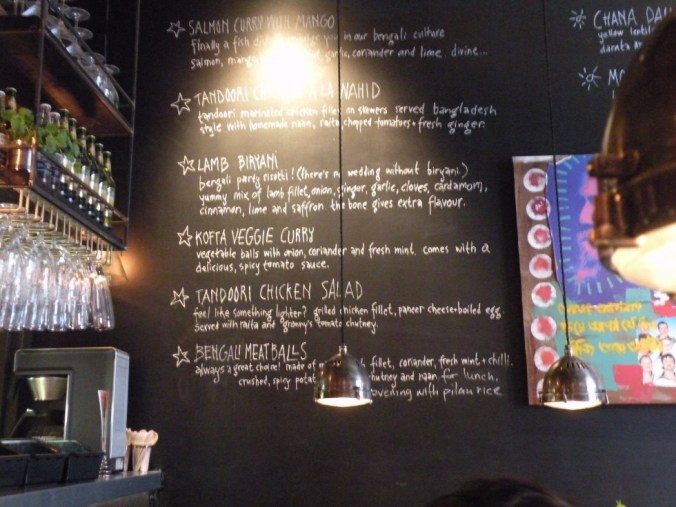 SALMON CURRY WITH MANGO
Finally a fish you in our bengali culture
salmon, coriander and lime. divine...
TANDOORI LA NAHID
tandoori marinated chicken fillet on skewers served bangladesh
style with homemade naan, raita, chopped tomatoes + fresh ginger.
LAMB BIRYANI
bengali party risotti! (there's no wedding without biryani.)
yummy mix of lamb fillet, onion, ginger, garlic, cloves, cardamom,
cinnamon, lime and saffran. the bone gives extra flavour.
KOFTA VEGGIE CURRY
vegetable balls with onion, coriander and fresh mint. comes with a
delicious, spicy tomato sauce.
TANDOORI CHICKEN SALAD
feel like something lighter? grilled chicken fillet, paneer cheese + boiled egg.
served with raita and granny's tomato chutney.
BENGALI MEATBALLS
always a great choice! made of fillet, coriander, fresh mint + chilli.
crushed, spicy chutney and naan for lunch.
evening with pilau rice
CHANA
yellow